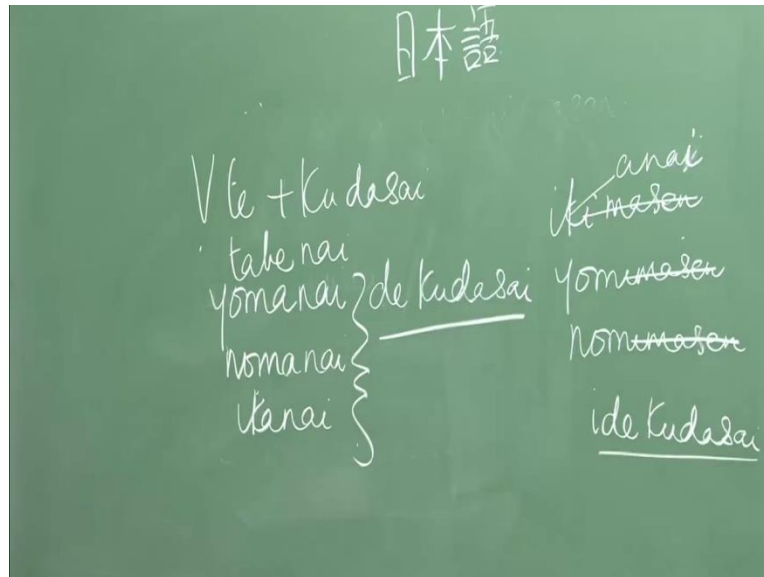 日本語
V te + Kudasai
tabenai
yomanai
nomanai
ikanai
de kudasai
anai
ikimasen
yomimasen
nomimasen
ide kudasai